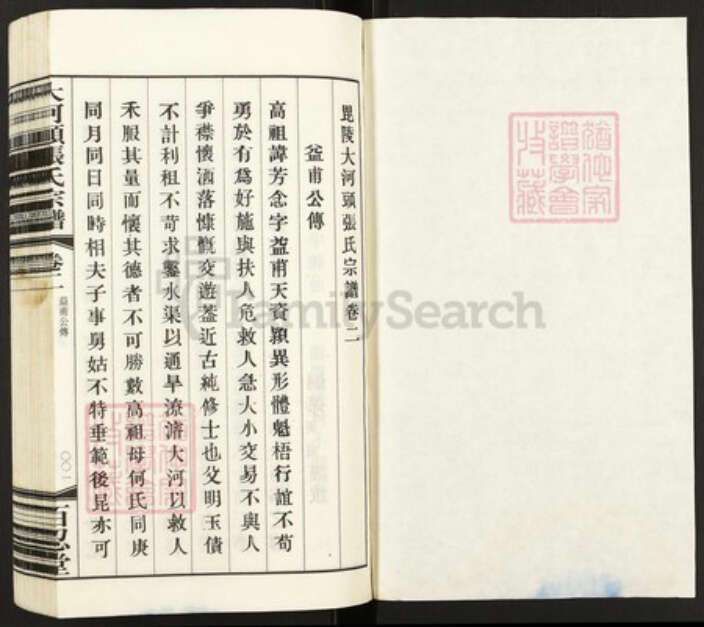 毘陵大河頭張氏宗譜卷二
益甫公傳
高祖諱芳念字益甫天資穎異形體魁梧行誼不苟
勇於有爲好施與扶人危救人急大小交易不與人
爭襟懷洒落慷慨交遊葢近古純修士也父明玉債
不計利租不苛求鑿水渠以通旱潦濬大河以救人
禾服其量而懷其德者不可勝數高祖母何氏同庚
同月同日同時相夫子事舅姑不特垂範後昆亦可
大河頭張氏宗譜
卷二
益甫公傳
〇〇一
百忍堂
譜學會
收藏
FamilySearch